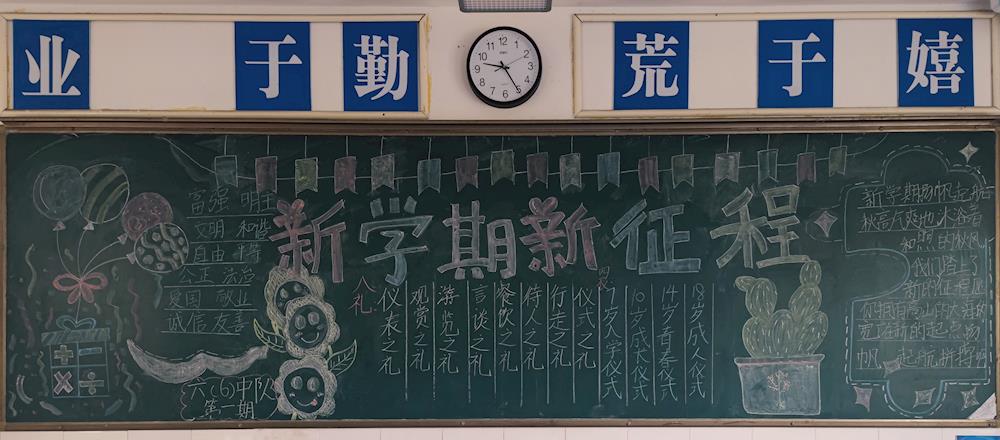 业于勤
荒于嬉
富强 民主
文明 和谐
自由 平等
公正 法治
爱国 敬业
诚信 友善
新学期新征程
八礼
仪表之礼
观赏之礼
游览之礼
言谈之礼
餐饮之礼
待人之礼
行走之礼
仪式之礼
四
7岁入学仪式
10岁成长仪式
14岁青春仪式
18岁成人仪式
六(6)中队
第一期
新学期扬帆起航
秋高气爽
的秋风
我们踏上了
新的征程
在新的起点扬
帆 起航拼搏
11 12 1 2 3 4 5 6 7 8 9 10